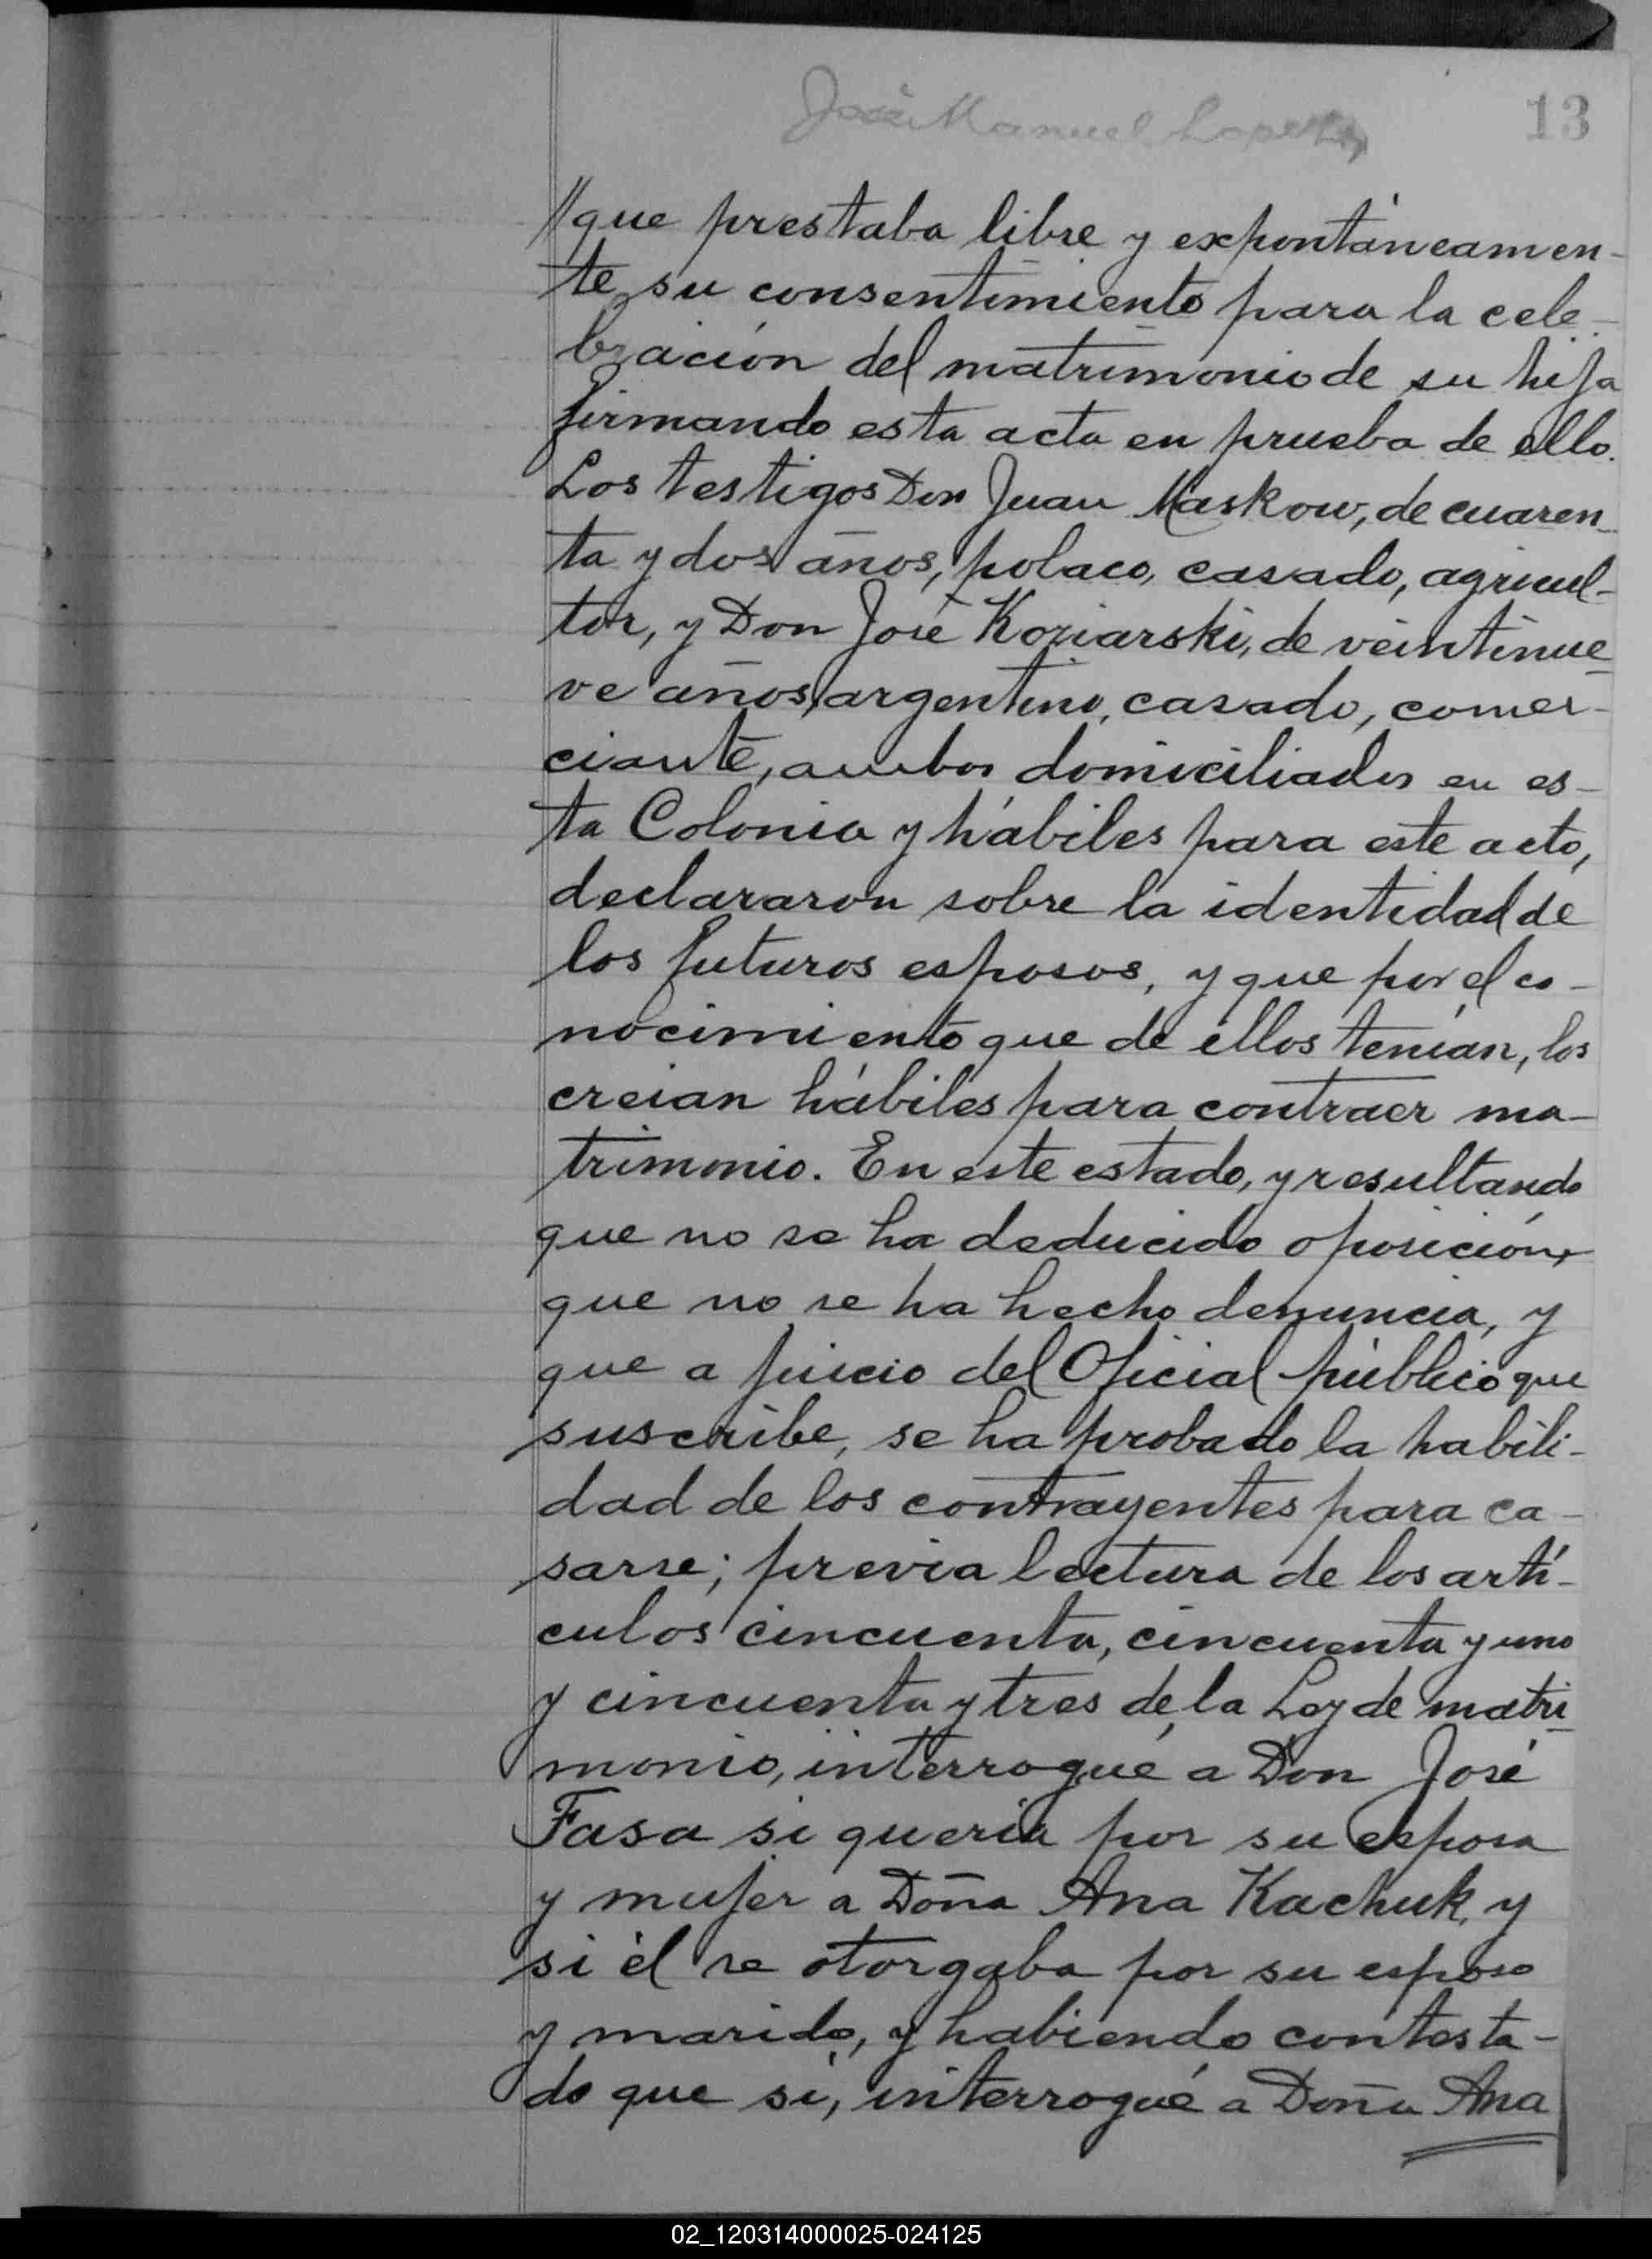 José Manuel Lopez
13
//que prestaba libre y expontáneamen-
te su consentimiento para la cele-
bración del matrimonio de su hija
firmando esta acta en prueba de ello.
Los testigos Don Juan Maskow, de cuaren-
ta y dos años, polaco, casado, agricul-
tor, y Don José Koziarski, de veintinue
ve años, argentino, casado, comer-
ciante, ambos domiciliados en es-
ta Colonia y hábiles para este acto,
declararon sobre la identidad de
los futuros esposos, y que por el co-
nocimiento que de ellos tenían, los
creian hábiles para contraer ma-
trimonio. En este estado, y resultando
que no se ha deducido oposición,
que no se ha hecho denuncia, y
que a juicio del Oficial público que
suscribe, se ha probado la habili-
dad de los contrayentes para ca-
sarse; previa lectura de los artí-
culos cincuenta, cincuenta y uno
y cincuenta y tres de la Ley de matri
monio, interrogué a Don José
Fasa si quería por su esposa
y mujer a Doña Ana Kachuk, y
si él se otorgaba por su esposo
y marido, y habiendo contesta-
do que sí, interrogué a Doña Ana
02_120314000025-024125